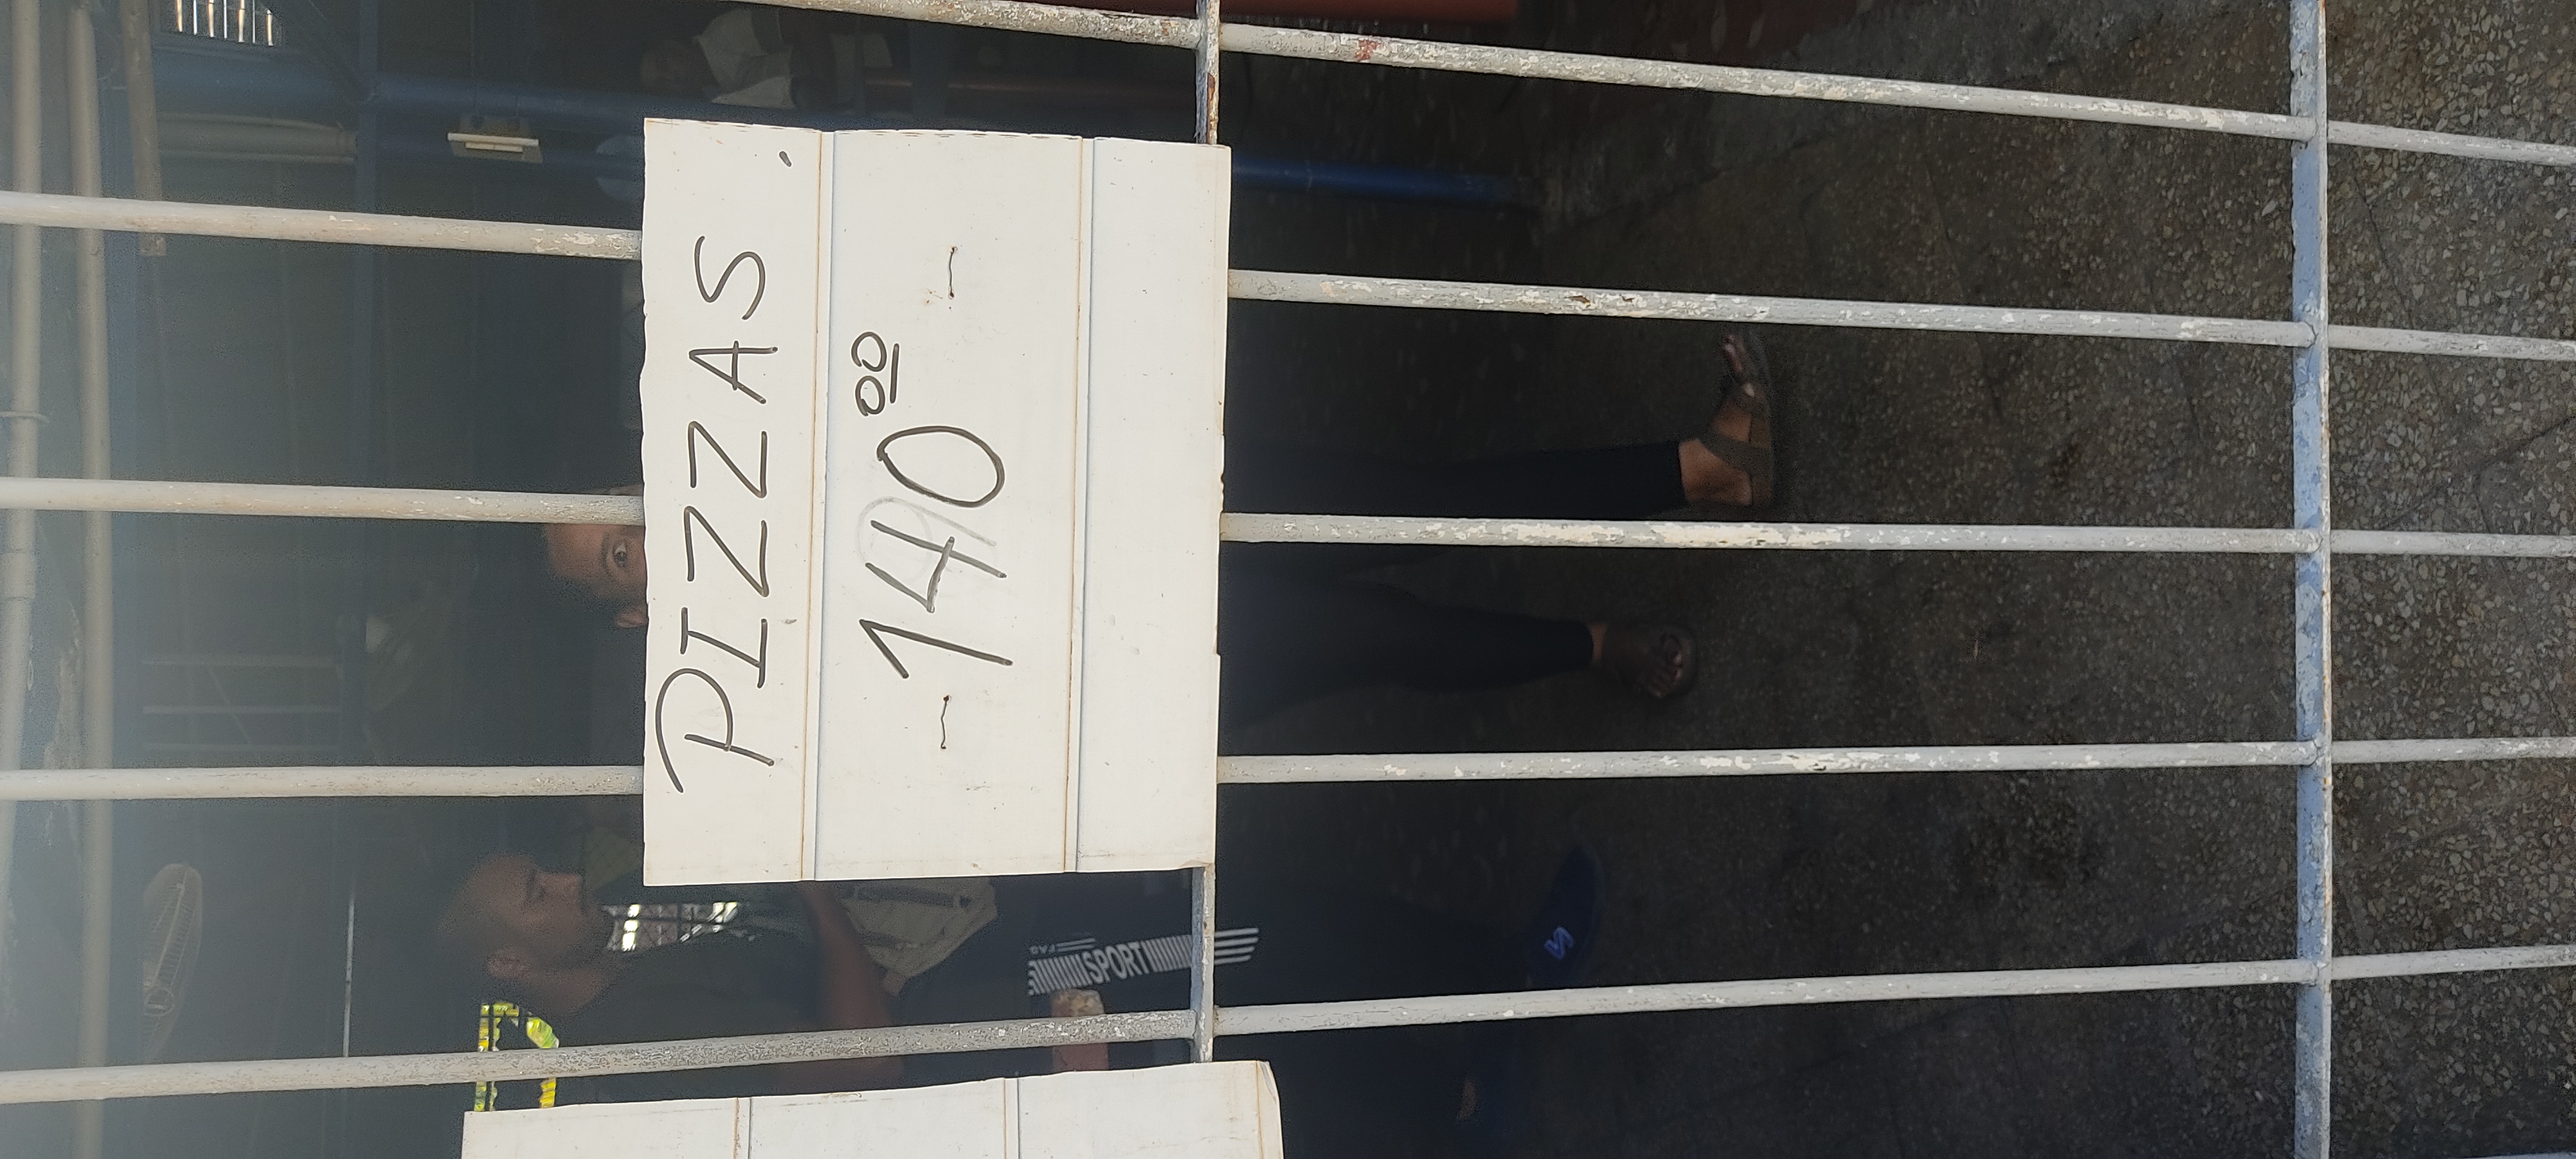 PIZZAS
140.00
SPORT